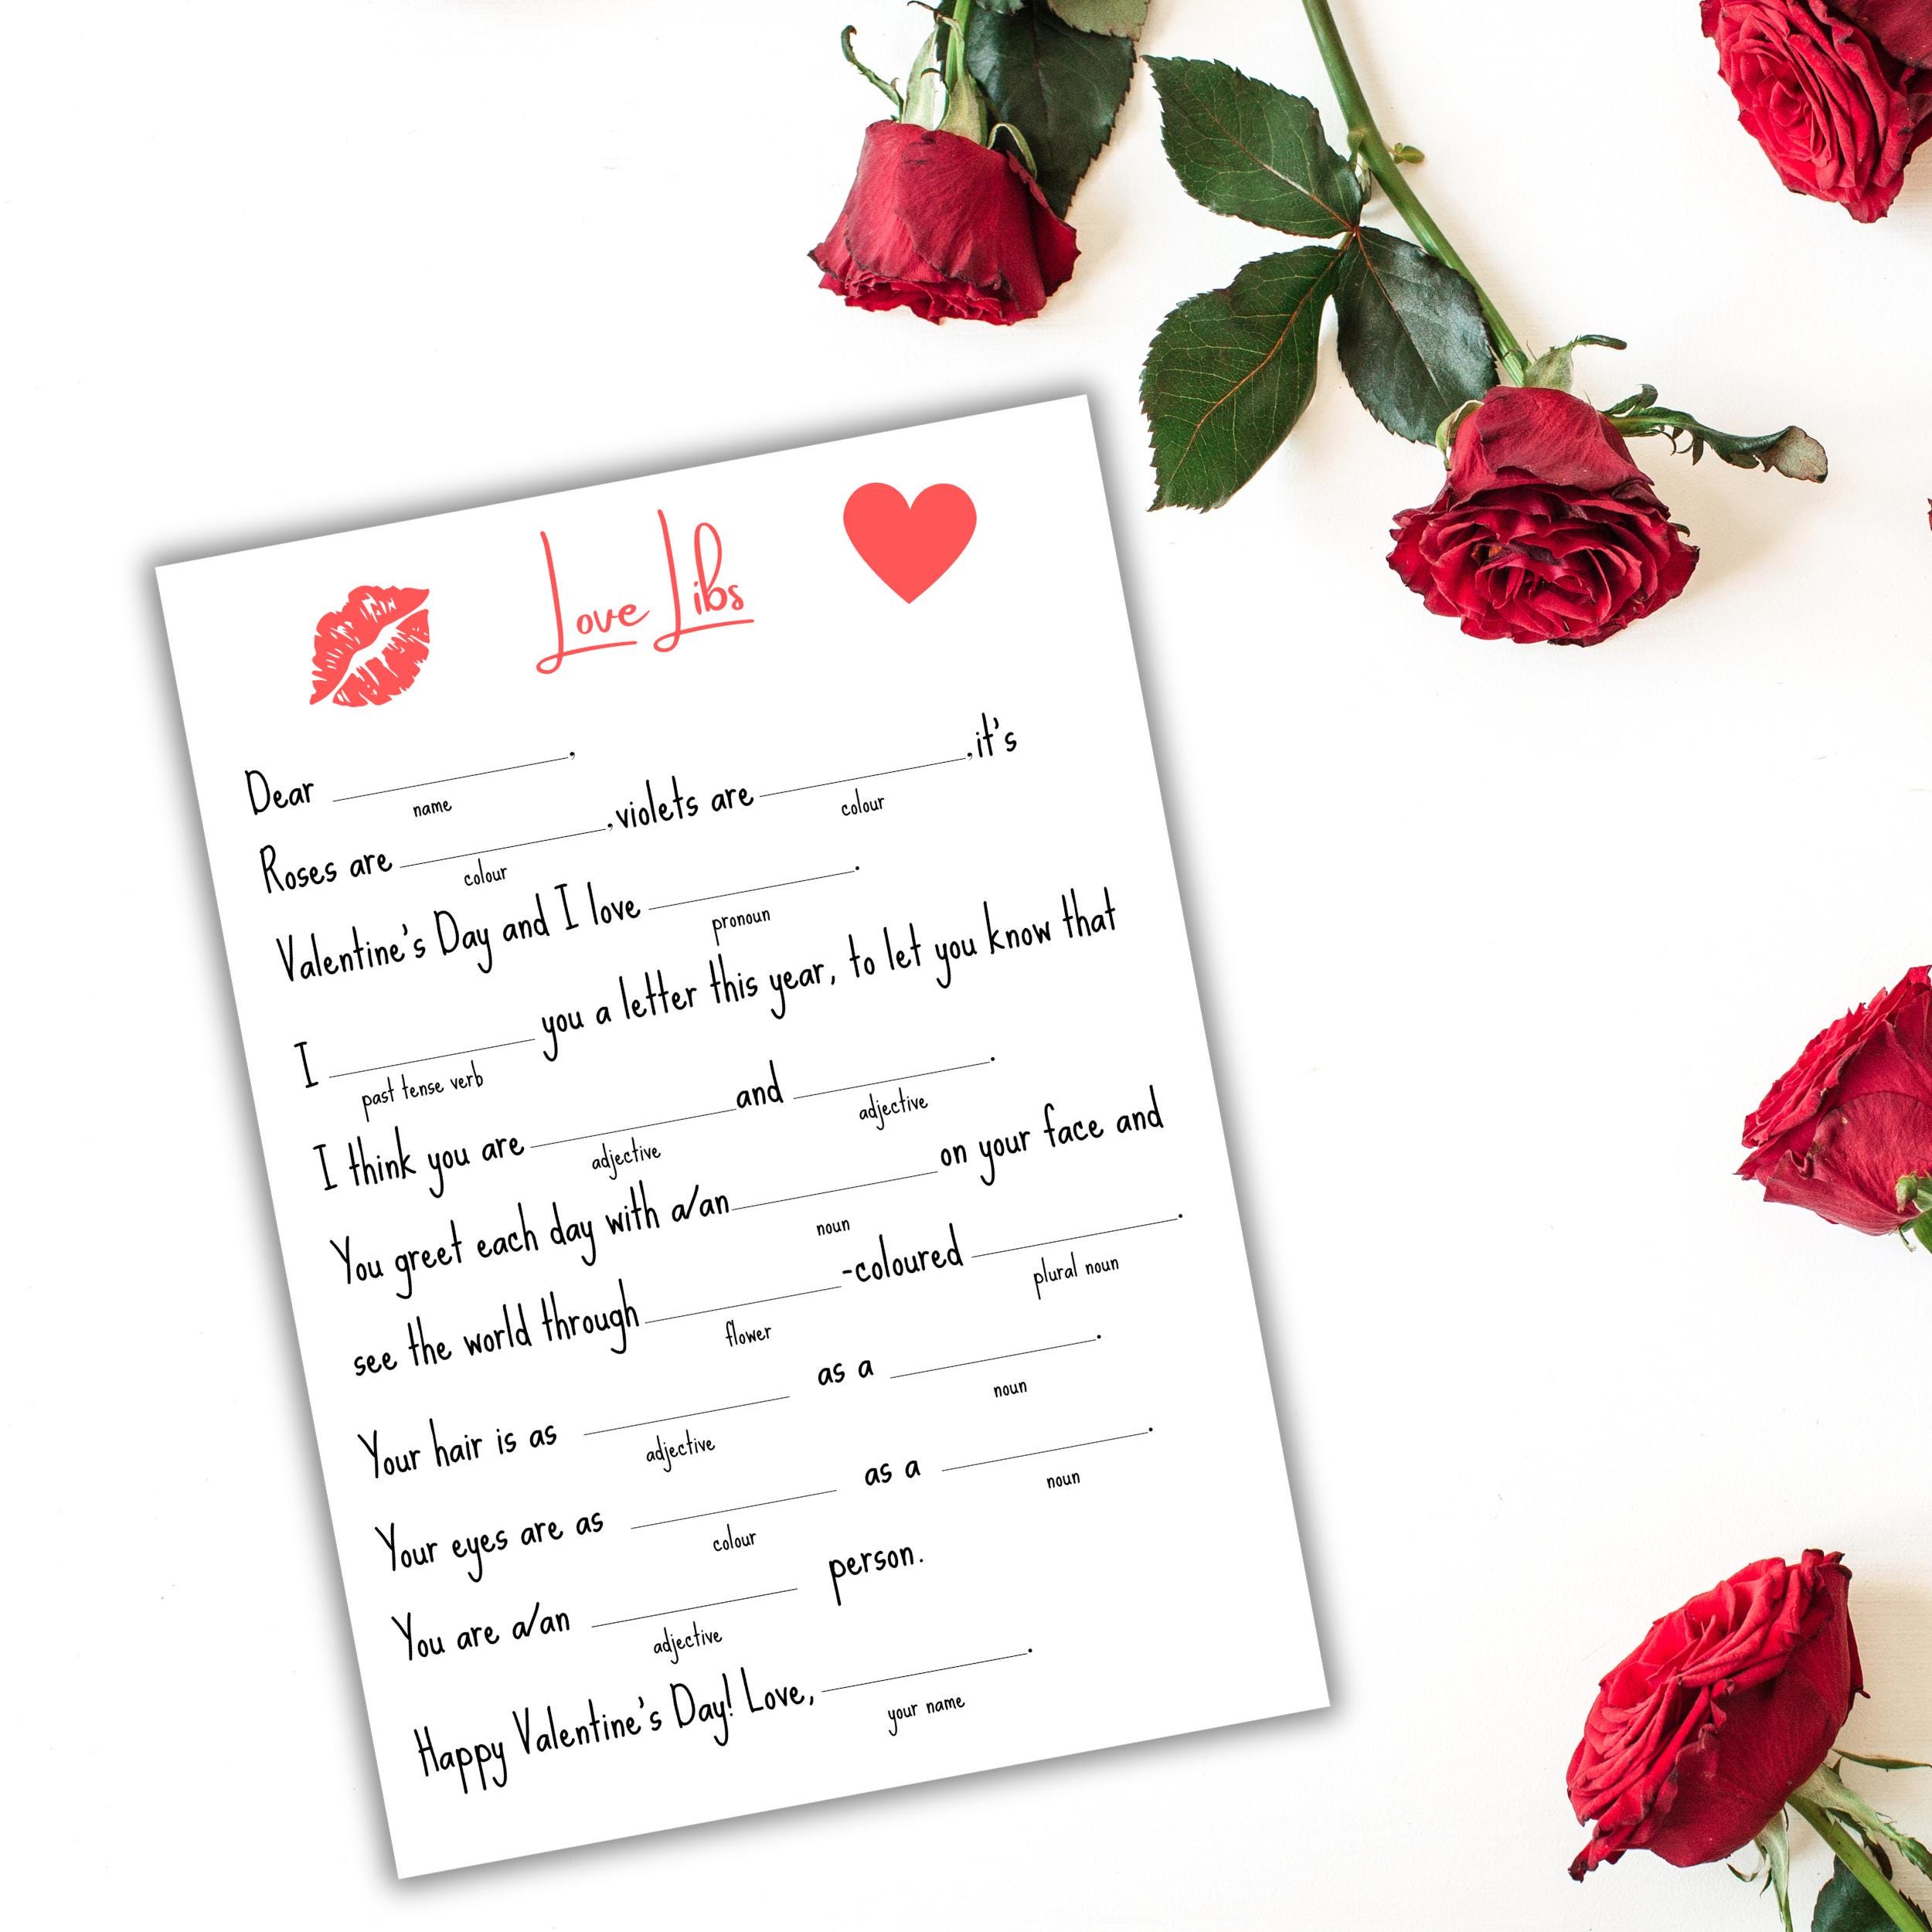 Love Libs
Dear ,
name
Roses are , violets are , it's
colour colour
Valentine's Day and I love .
pronoun
I you a letter this year, to let you know that
past tense verb
I think you are and .
adjective adjective
You greet each day with a/an on your face and
noun
see the world through -coloured .
flower plural noun
Your hair is as as a .
adjective noun
Your eyes are as as a .
colour noun
You are a/an person.
adjective
Happy Valentine's Day! Love, .
your name